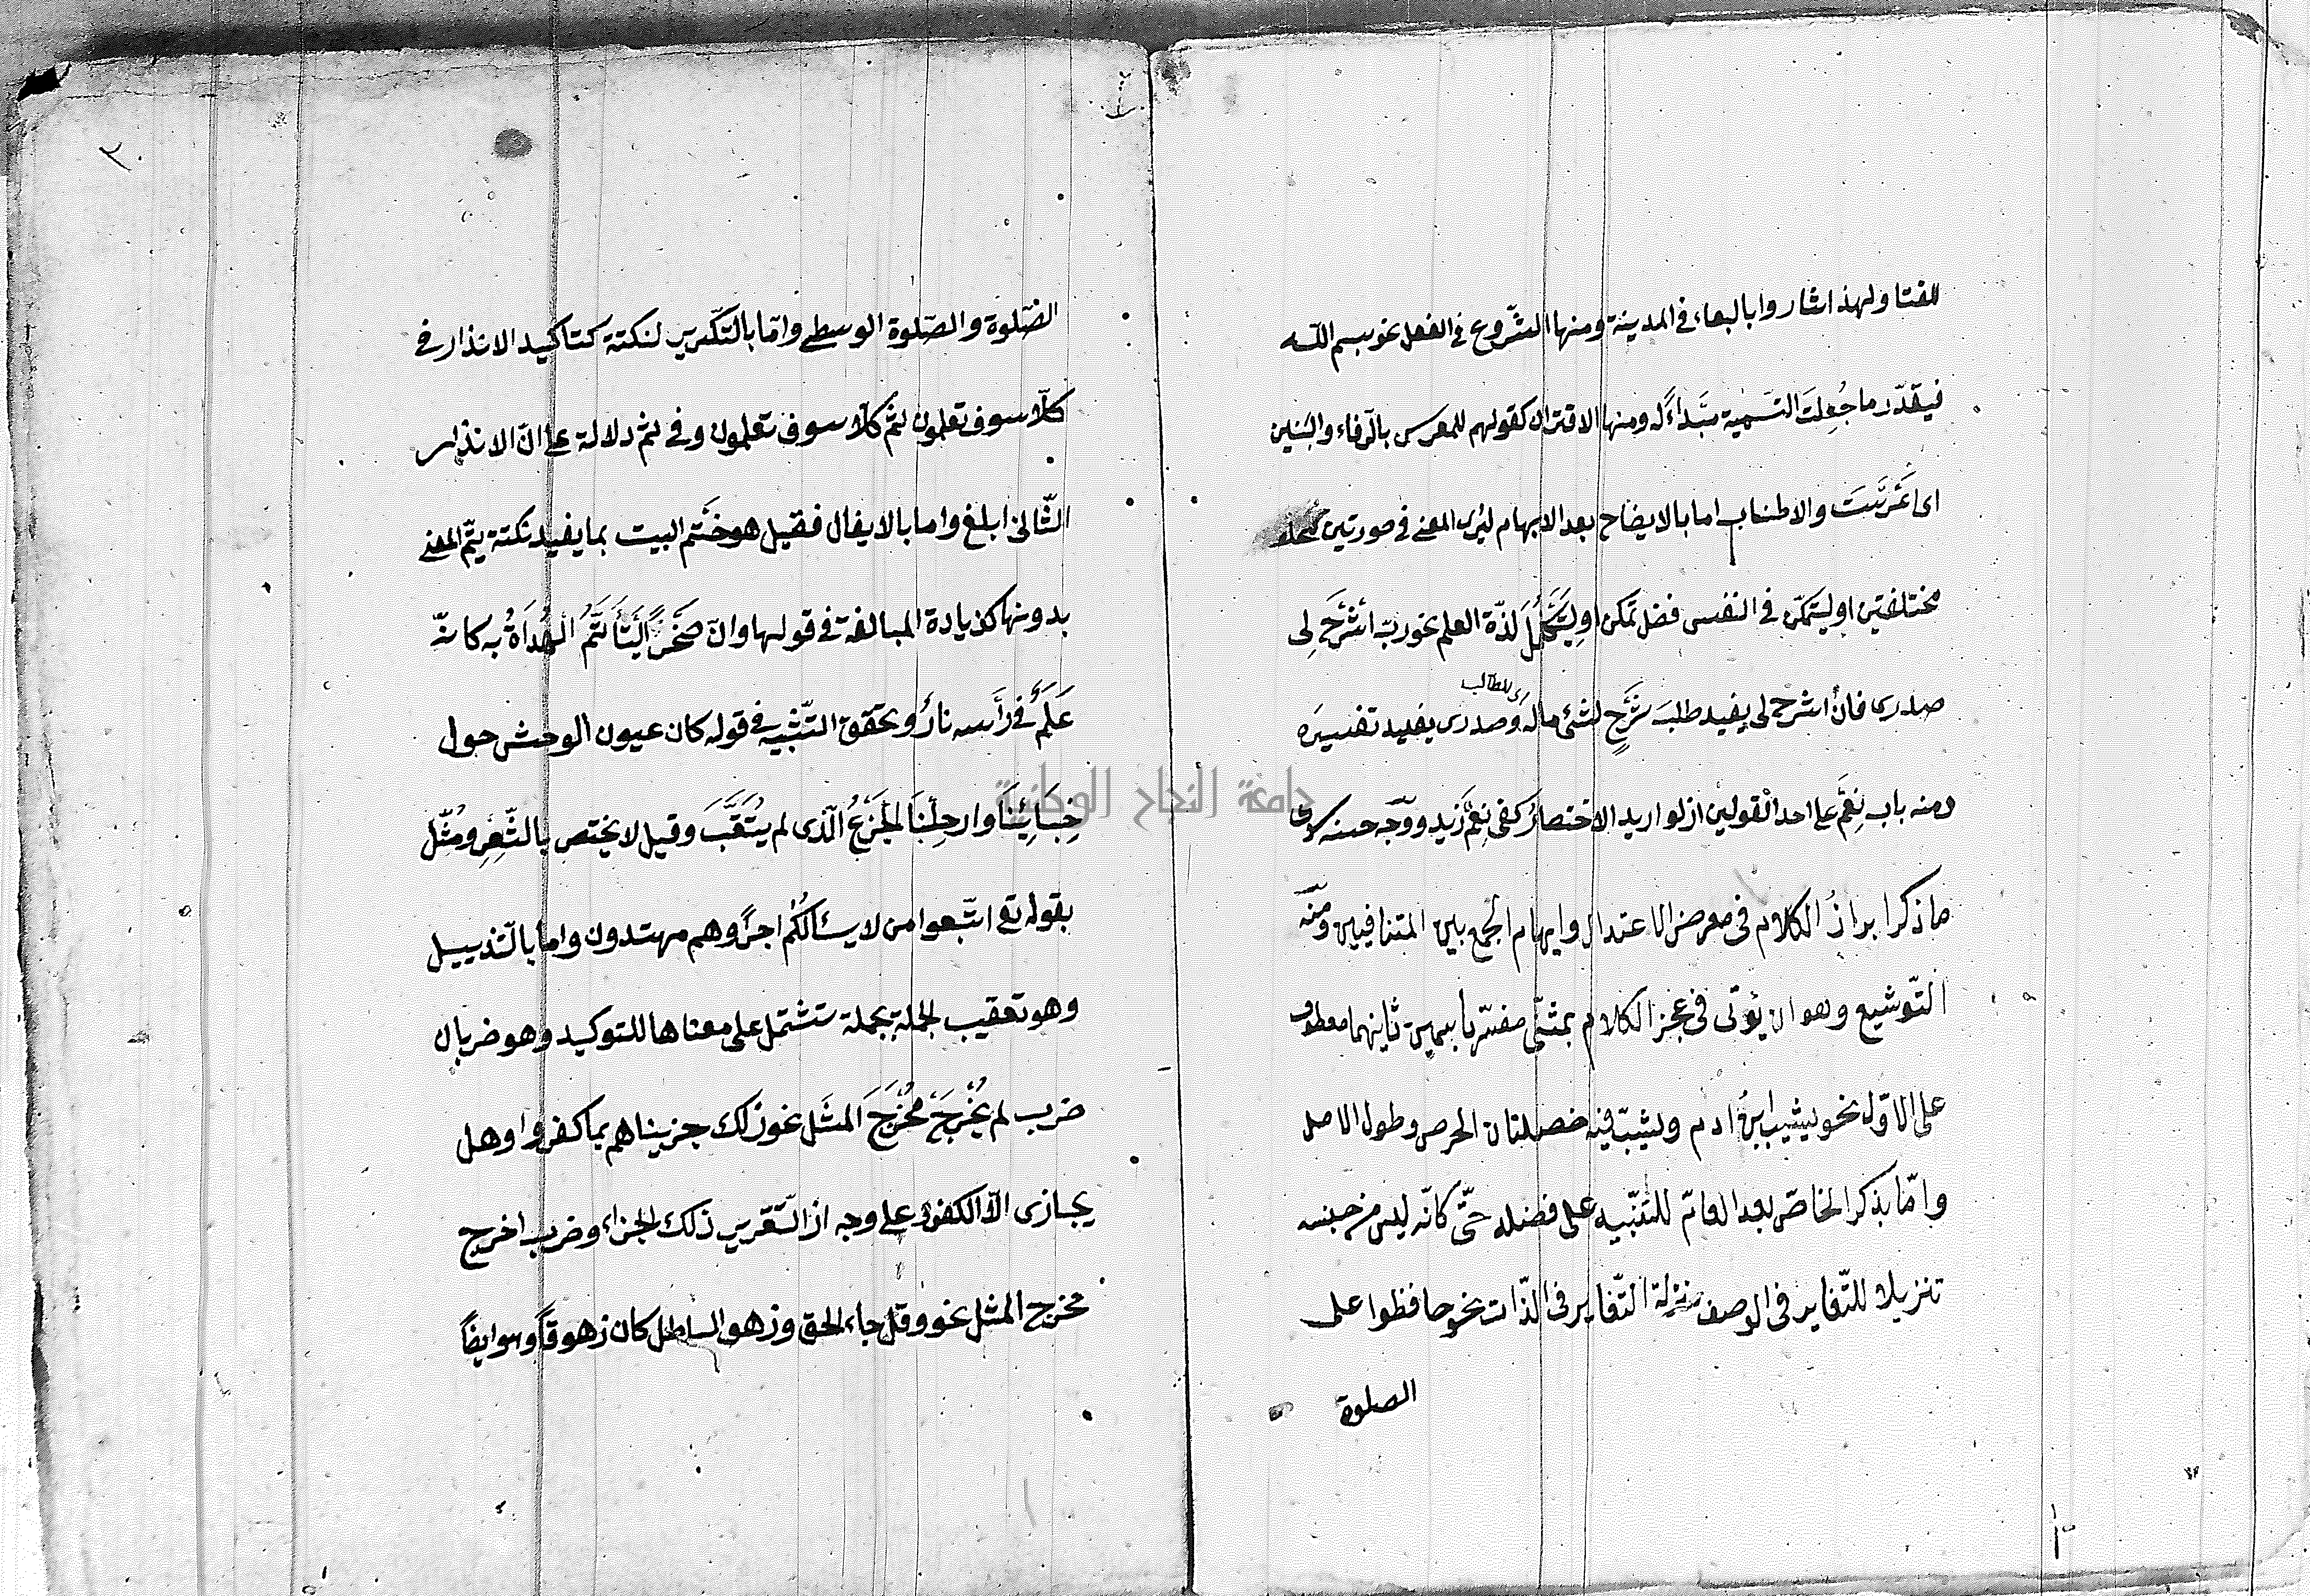 للفتا ولهذا اشاروا بالبعاء في المدينة ومنها الشّروع في الفعل نحو بسم اللّه
فيقدّر ما جُعِلَت التسمية مبدأً له ومنها الاقتران كقولهم للمعرس بالرّفاء والبَنين
اى اَعْرَسْتَ والاطناب اما بالايضاح بعد الابهام ليُرى المعنى في صورتين
مختلفتين او ليتمكّن في النفس فضل تمكن او لِتَكْمُلَ لذّة العلم نحو ربّ اشْرَحْ لِى
صدرى فانّ اشرح لى يفيد طلبَ شَرْحٍ لشئ ما له وصدرى يفيد تفسيرَه
اى للطالب
ومنه باب نِعْمَ على احد القولين اذ لو اريد الاختصارُ كفى نِعْمَ زيد ووجه حسنه سوى
ما ذكر ابرازُ الكلام في معرض الاعتدال وايهام الجمع بين المتنافيين ومنه
التّوشيع وهو ان يُؤتَى في عجز الكلام بمثنّى مفسّر باسمين ثانيهما معطوف
على الاوّل نحو يشيب ابنُ ادم ويشبّ فيه خصلتان الحرص وطول الامل
وامّا بذكر الخاصّ بعد العامّ للتنبيه على فضله حتّى كانّه ليس من جنسه
تنزيلا للتّغاير في الوصف منزلة التّغاير في الذّات نحو حافظوا على
الصلوة
٣٠
الصّلوة والصّلوة الوسطى وامّا بالتّكرير لنكتة كتاكيد الانذار في
كلّا سوف تعلمون ثمّ كلّا سوف تعلمون وفي ثمّ دلالة على انّ الانذار
الثّانى ابلغ واما بالايغال فقيل هو ختم البيت بما يفيد نكتة يتمّ المعنى
بدونها كزيادة المبالغة في قولها وانّ صَخْرًا لَتَأْتَمُّ الهُدَاةُ به كانّه
عَلَمٌ في رَأسه نارٌ وتحقق التّشبيه في قوله كان عيون الوحش حول
خِبَائِنَا وارحِلِنَا الجَزْعُ الّذى لم يُثَقَّبَ وقيل لا يختص بالشّعر ومُثّل
بقوله تع اتّبعوا من لا يسئالُكُم اجرًا وهم مهتدون واما بالتّذييل
وهو تعقيب الجملة بجملة تشتمل على معناها للتوكيد وهو ضربان
ضرب لم يُخْرَجْ مُخْرَجَ المثَل نحو ذلك جزيناهم بما كفروا وهل
يجازى الّا الكفور على وجه اذ التّقرير ذلك الجزاء وضرب اخرج
مخرج المثل نحو وقل جاء الحق وزهق الباطل كان زهوقًا وهو ايضًا
جامعة النجاح الوطنية